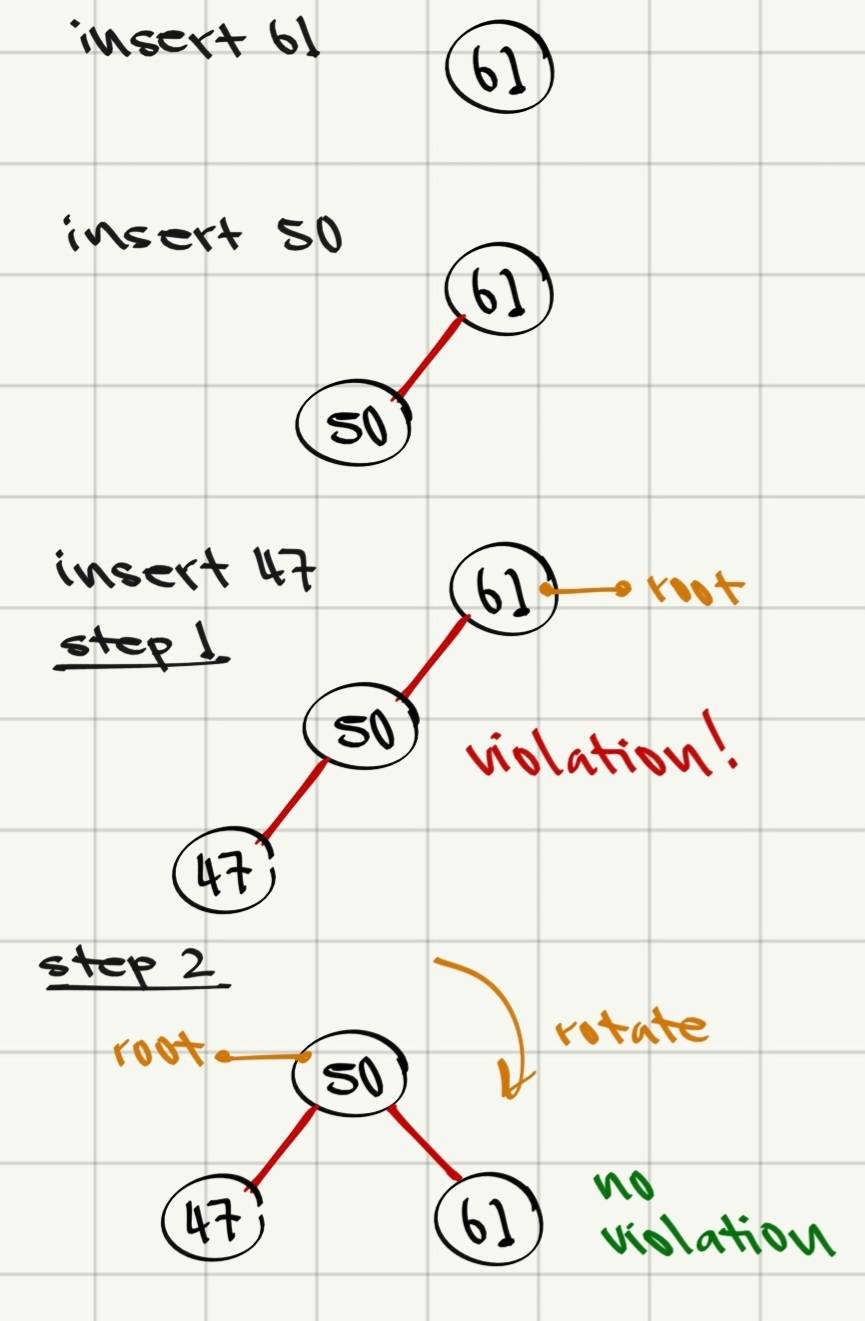 insert 61
61
insert 50
61
50
insert 47
61
root
step 1
50
violation!
47
step 2
rotate
root
50
no
47
61
violation